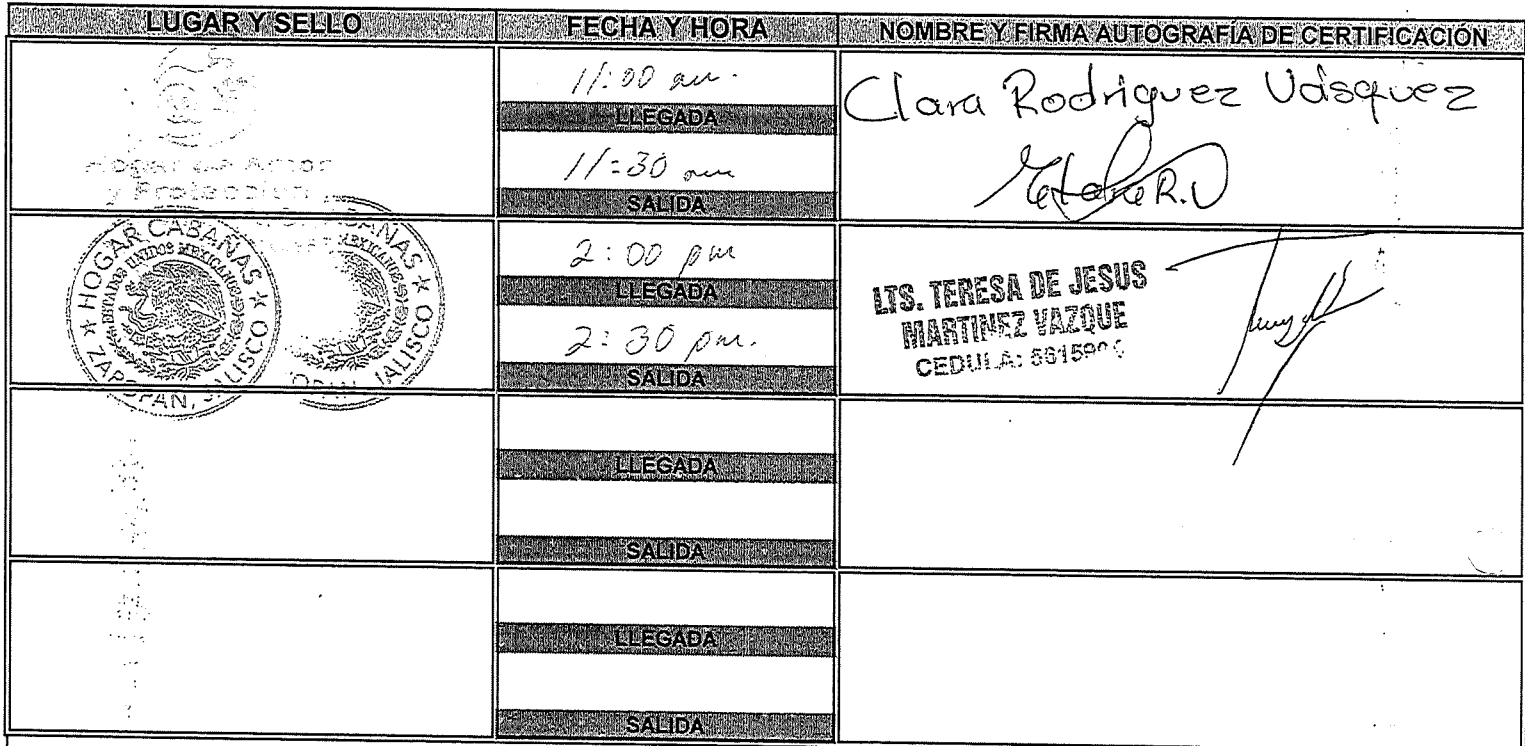 LUGAR Y SELLO
FECHA Y HORA
NOMBRE Y FIRMA AUTOGRAFÍA DE CERTIFICACIÓN
Hogar de Amor
y Protección
11:00 am.
LLEGADA
11:30 am
SALIDA
Clara Rodriguez Vásquez
R.V
HOGAR CABAÑAS
ESTADOS UNIDOS MEXICANOS
ZAPOPAN, JALISCO
CABAÑAS
MEXICANOS
ZAPOPAN, JALISCO
2:00 pm
LLEGADA
2:30 pm.
SALIDA
LTS. TERESA DE JESUS
MARTINEZ VAZQUE
CEDULA:
LLEGADA
SALIDA
LLEGADA
SALIDA